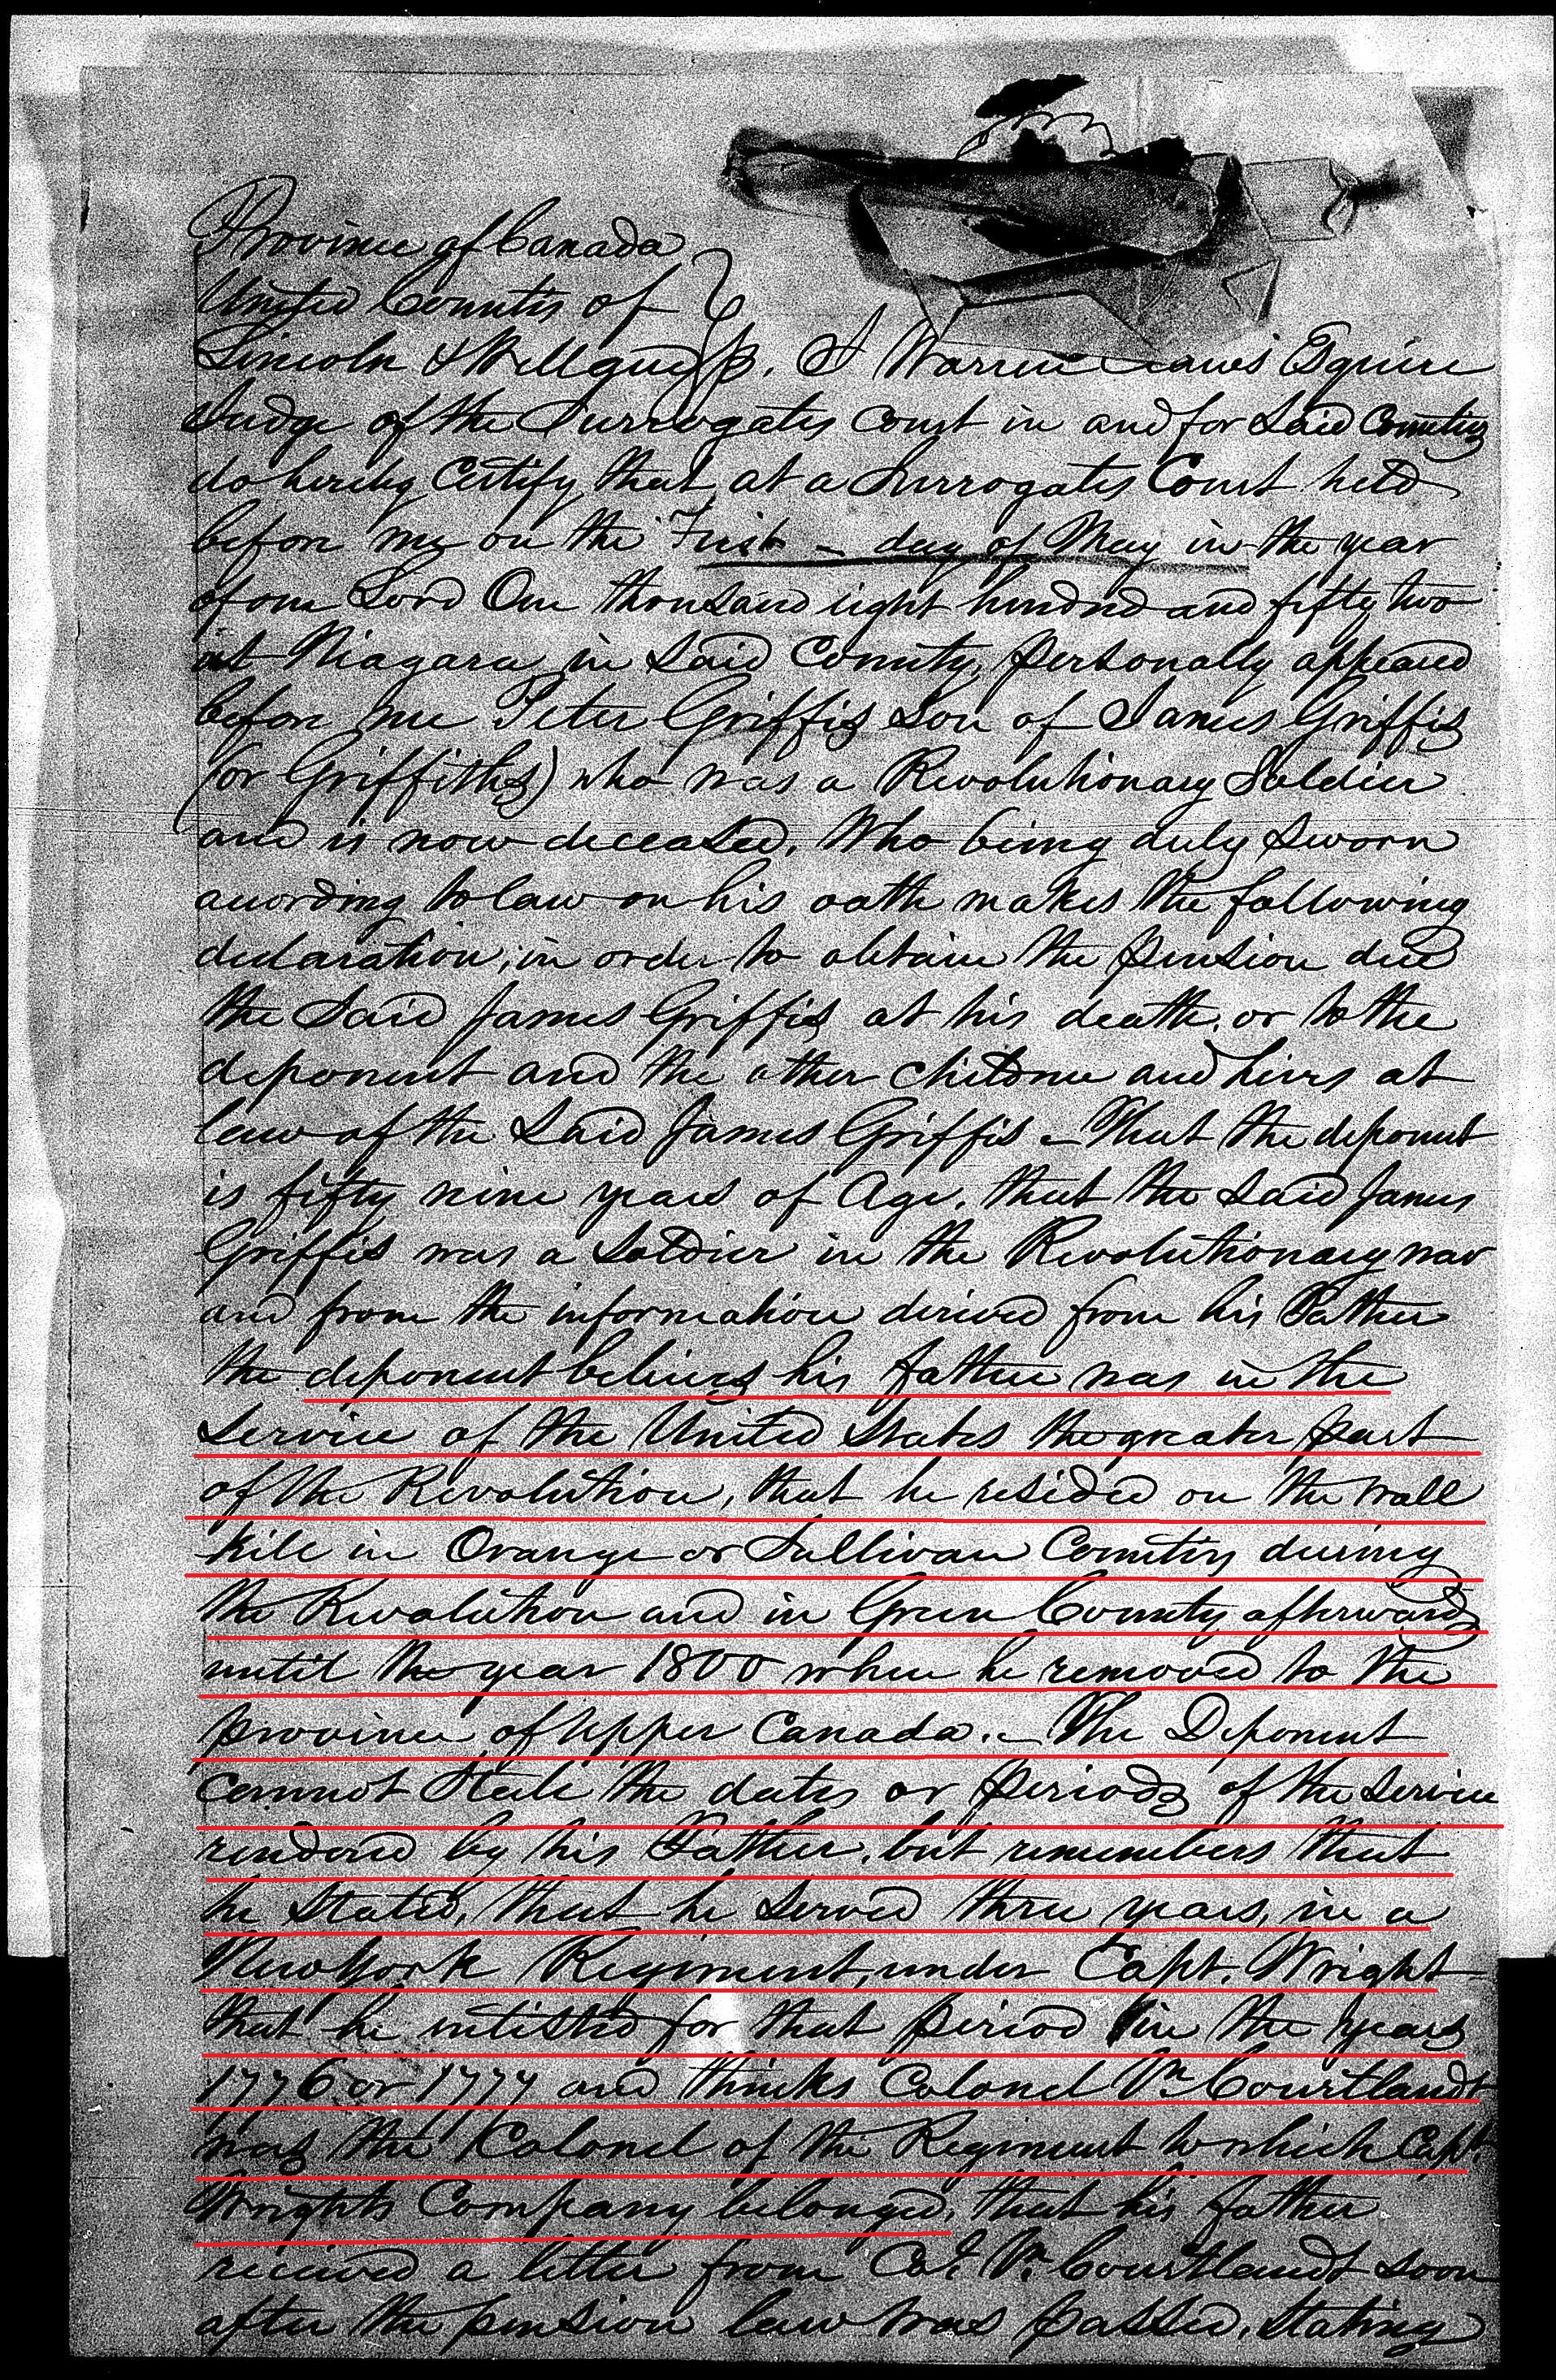 Province of Canada
United Counties of
Lincoln & Welland SS. I Warren Claus Esquire
Judge of the Surrogates Court in and for Said Counties
do hereby Certify that, at a Surrogates Court held
before me on the First – day of May in the year
of our Lord One thousand eight hundred and fifty two
at Niagara in Said County, personally appeared
before me Peter Griffis Son of James Griffis
(or Griffiths) who was a Revolutionary Soldier
and is now deceased, Who being duly Sworn
according to law on his oath makes the following
declaration, in order to obtain the Pension due
the Said James Griffis at his death, or to the
deponent and the other children and heirs at
law of the Said James Griffis – That the deponent
is fifty nine years of Age, that the Said James
Griffis was a Soldier in the Revolutionary war
and from the information derived from his Father
the deponent believes his father was in the
Service of the United States the greater part
of the Revolution, that he resided on the Wall
kile in Orange or Sullivan Counties during
the Revolution and in Green County afterwards
until the year 1800 when he removed to the
province of Upper Canada. – The Deponent
cannot State the dates or periods of the Service
rendered by his Father, but remembers that
he Stated, that he Served three years, in a
New York Regiment, under Capt. Wright –
that he entisted for that period in the years
1776 or 1777 and thinks Colonel Vn. Courtlandt
was the Colonel of the Regiment to which Capt.
Wrights Company belonged, that his father
received a letter from Col. Vn. Courtlandt soon
after the pension law was passed, Stating